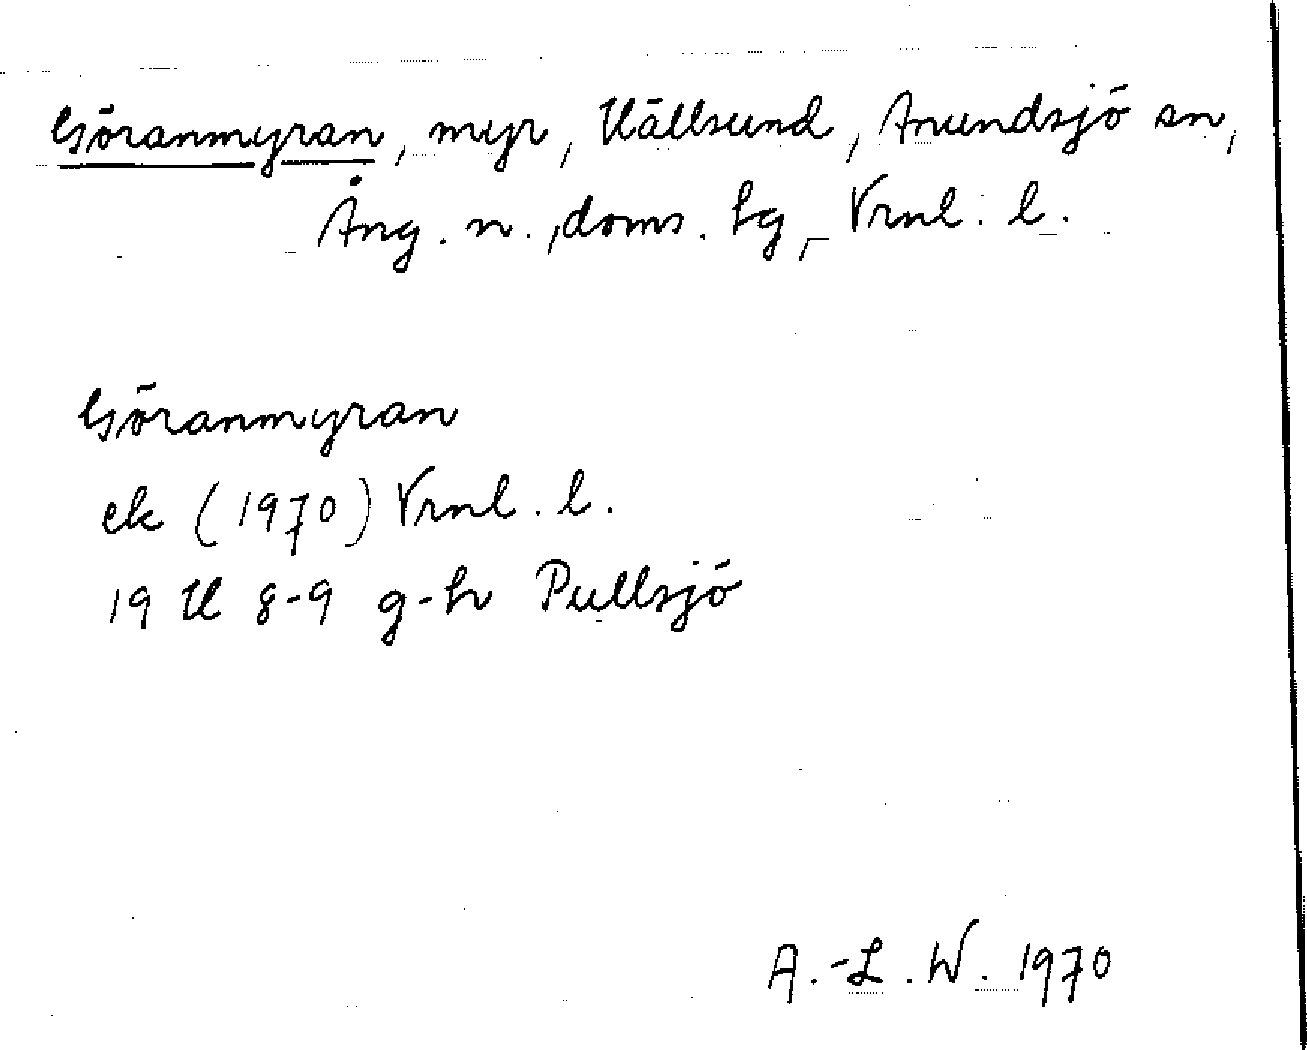 Göranmyran, myr, Källsund, Anundsjö sn,
Ång. n., doms. hg, Vrnl. l.
Göranmyran
ek (1970) Vrnl. l.
19 H 8-9 g-h Pullsjö
A.-L. W. 1970